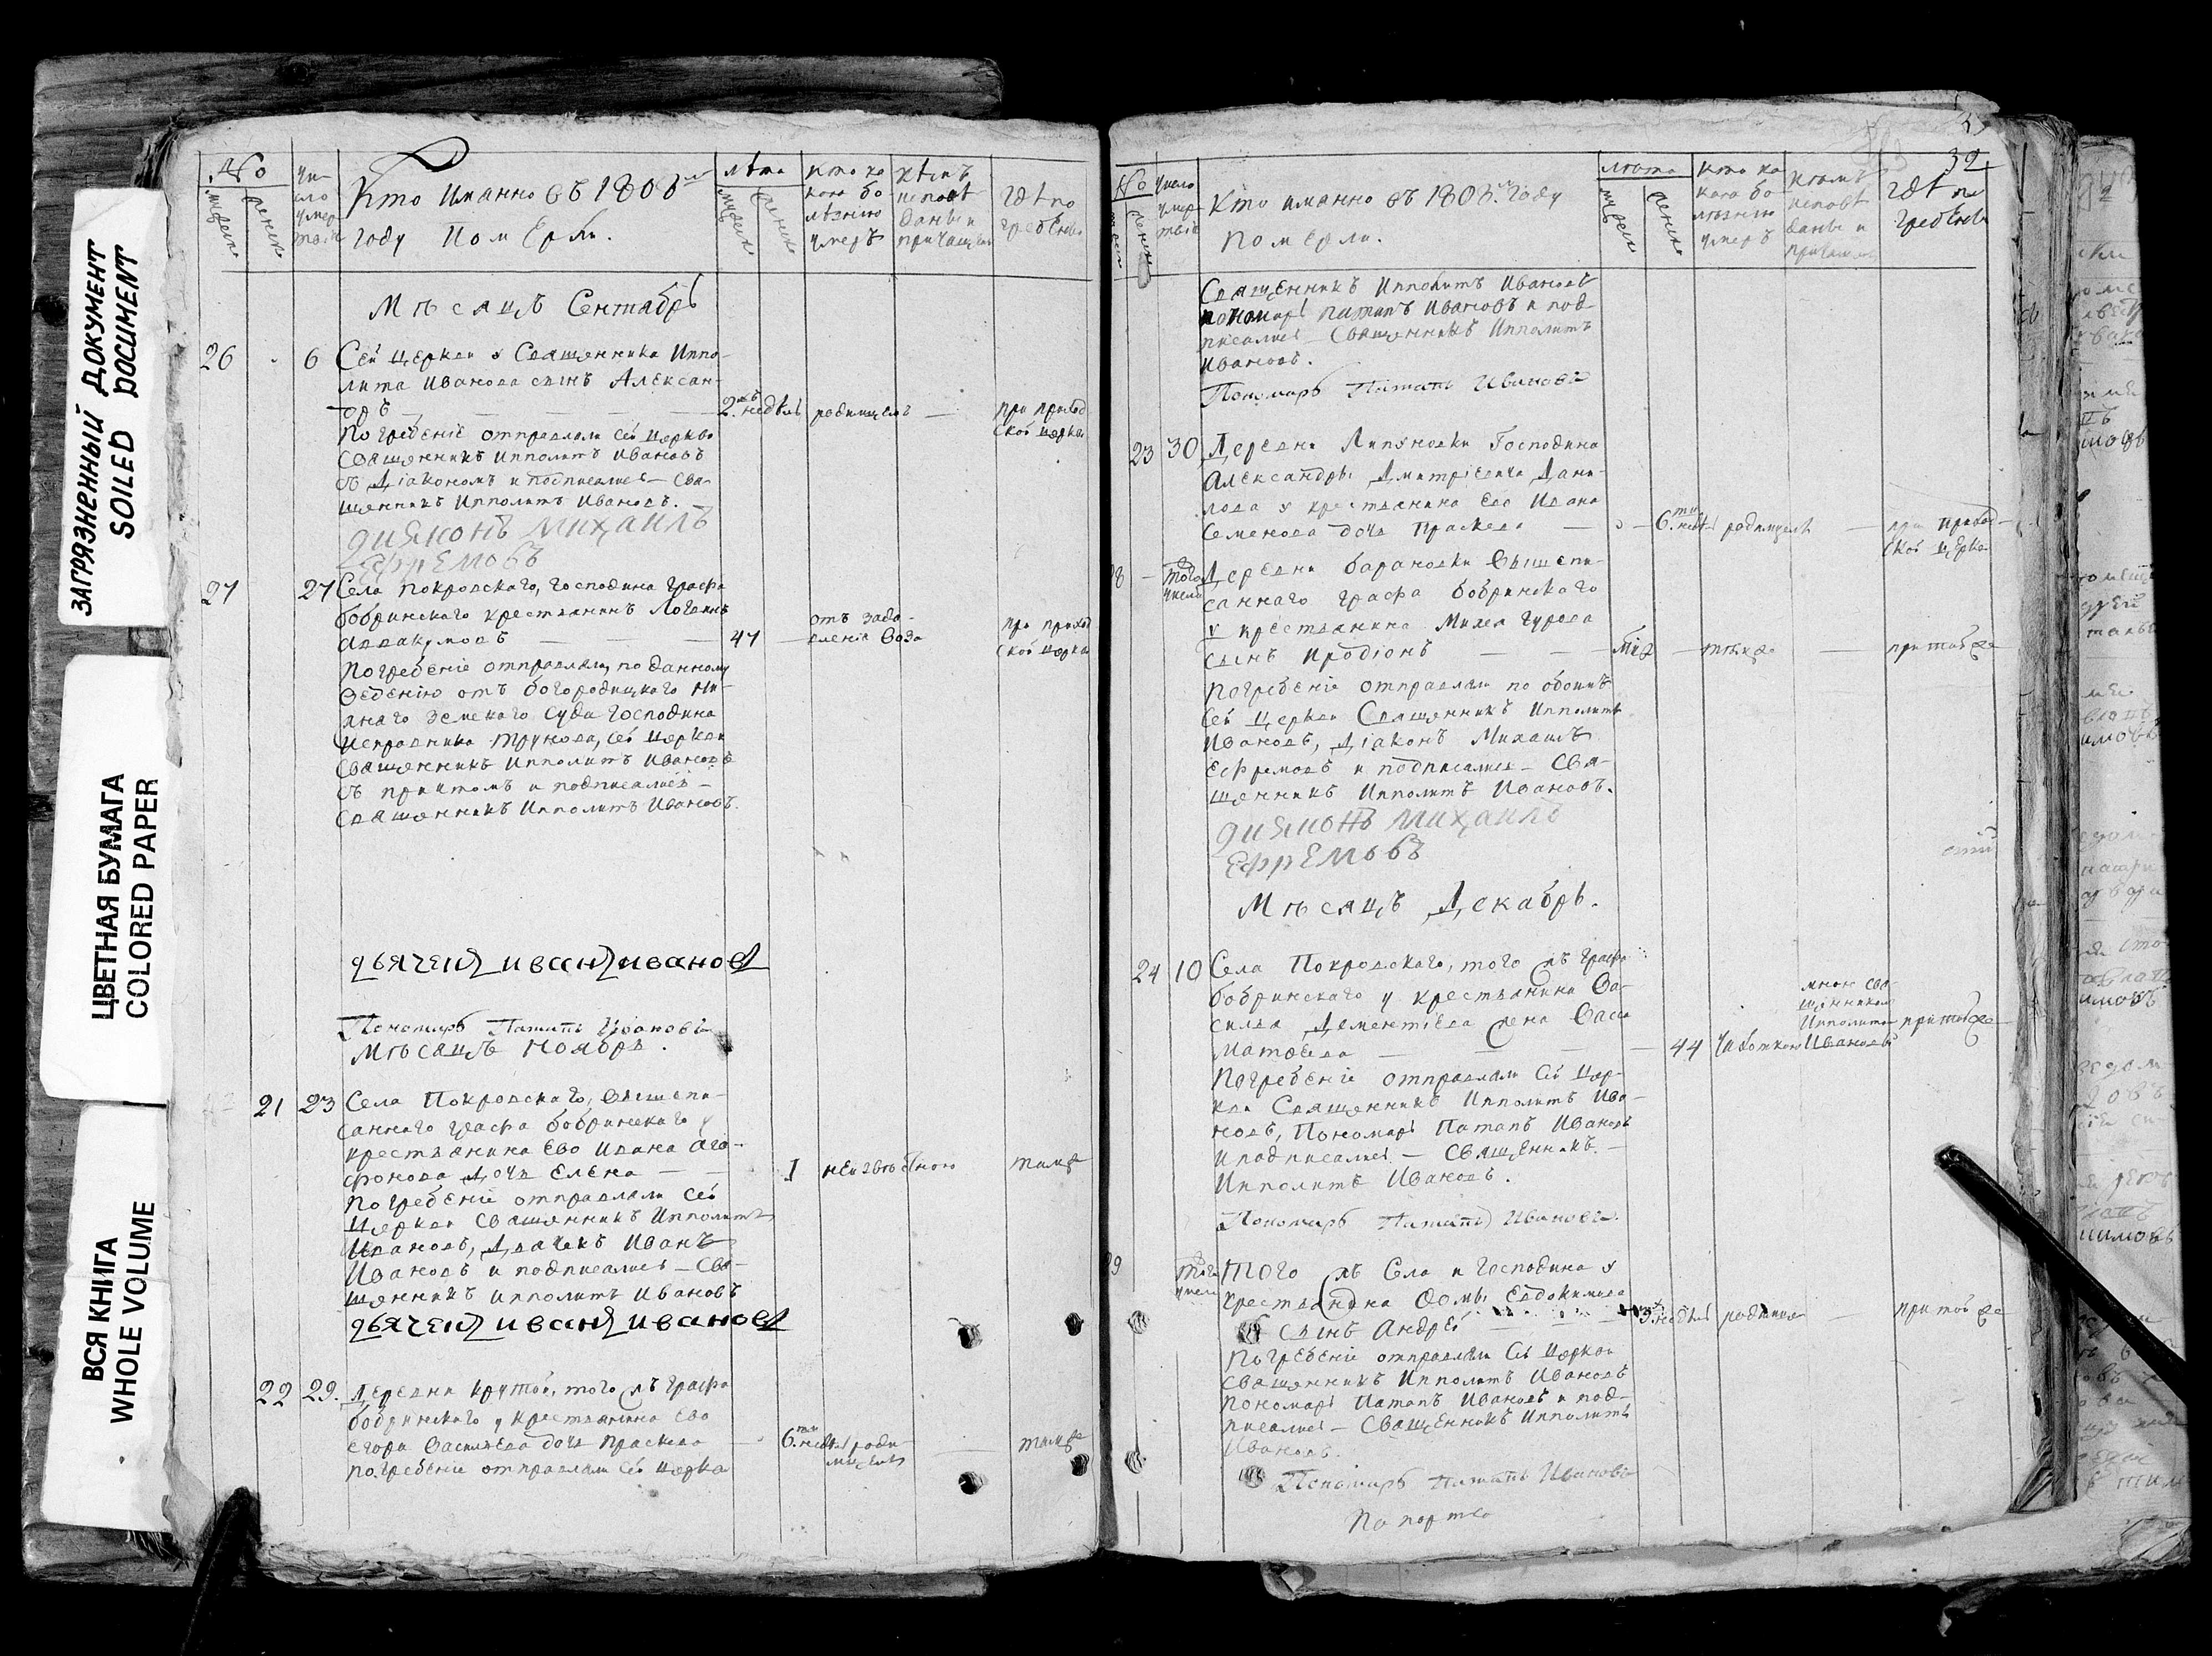 ЗАГРЯЗНЕННЫЙ ДОКУМЕНТ
SOILED DOCUMENT
ЦВЕТНАЯ БУМАГА
COLORED PAPER
ВСЯ КНИГА
WHOLE VOLUME
№
Кто имянно въ 1808м
году померли.
лѣта
кто ка
кою бо
лѣзнію
умеръ
кѣмъ
исповѣ
даны и
причащены
гдѣ по
гребены
Мѣсяцъ Сентябрь
26 6 Сей церкви у Священника Иппо-
лита Иванова сынъ Алексан-
дръ 2хъ недѣль родимцемъ — при приход
ской церкви
Погребеніе отправляли сей церкви
Священникъ Ипполитъ Ивановъ
съ Діакономъ и подписались — Свя-
щенникъ Ипполитъ Ивановъ.
дияконъ Михаилъ
Ефремовъ
27 27 Села Покровскаго, господина графа
бобринскаго крестьянинъ Логвинъ
Аввакумовъ 47 отъ зада-
вленія воза при приход
ской церкви
Погребеніе отправляли, по данному
веденію отъ богородицкаго ни-
жняго земскаго суда господина
исправника Трунова, сей церкви
Священникъ Ипполитъ Ивановъ
съ причтомъ и подписались —
Священникъ Ипполитъ Ивановъ.
дьячекъ иванъ ивановъ
Пономарь Патапъ Ивановъ
Мѣсяцъ Ноябрь.
21 23 Села Покровскаго, вышепи-
саннаго графа бобринскаго у
крестьянина ево Ивана Ага-
фонова дочь Елена — 1 неизвѣстною тамже
Погребеніе отправляли сей
церкви Священникъ Ипполитъ
Ивановъ, Дьячекъ Иванъ
Ивановъ и подписались — Свя-
щенникъ Ипполитъ Ивановъ
дьячекъ иванъ ивановъ
22 29. Деревни крутой, того жъ графа
бобринскаго у крестьянина ево
Егора Васильева дочь Праскева — 6ти недѣль роди-
мцемъ — тамже
погребеніе отправляли сей церкви
39
№
число
умер
твія
Кто имянно въ 1808м году
померли.
лѣта
кто ка
кою бо
лѣзнію
умеръ
кѣмъ
исповѣ
даны и
гдѣ по
гребены
Священникъ Ипполитъ Ивановъ
пономарь патапъ Ивановъ и под-
писались — Священникъ Ипполитъ
Ивановъ.
Пономарь Патапъ Ивановъ
23 30 Деревни Липяновки Господина
Александры Дмитріевича Дани-
лова у крестьянина ево Ивана
Семенова дочь Праскева — 6ти недѣль родимцемъ — при приход-
ской церкви
28 — того числа Деревни барановки вышепи-
саннаго графа бобринскаго
у крестьянина Михея Гурова
сынъ Иродіонъ — — также — при той же
Погребеніе отправляли по обоимъ
сей церкви Священникъ Ипполитъ
Ивановъ, Діаконъ Михаилъ
Ефремовъ и подписались — Свя-
щенникъ Ипполитъ Ивановъ.
дияконъ михаилъ
Ефремовъ
Мѣсяцъ Декабрь.
24 10 Села Покровскаго, того жъ графа
бобринскаго у крестьянина Ва-
силья Дементіева жена Васа
Матвѣева — 44 чахоткою
мною свя-
щенникомъ
Ипполитомъ
Ивановымъ
при той же
Погребеніе отправляли сей цер-
кви Священникъ Ипполитъ Ива-
новъ, Пономарь Патапъ Ивановъ
и подписались — Священникъ
Ипполитъ Ивановъ.
Пономарь Патапъ Ивановъ.
29 того числа Того жъ Села и Господина у
крестьянина Ѳомы Евдокимова
сынъ Андрей — недѣль родимцемъ — при той же
Погребеніе отправляли сей церкви
Священникъ Ипполитъ Ивановъ
пономарь Патапъ Ивановъ и под-
писались — Священникъ Ипполитъ
Ивановъ.
Пономарь Патапъ Ивановъ